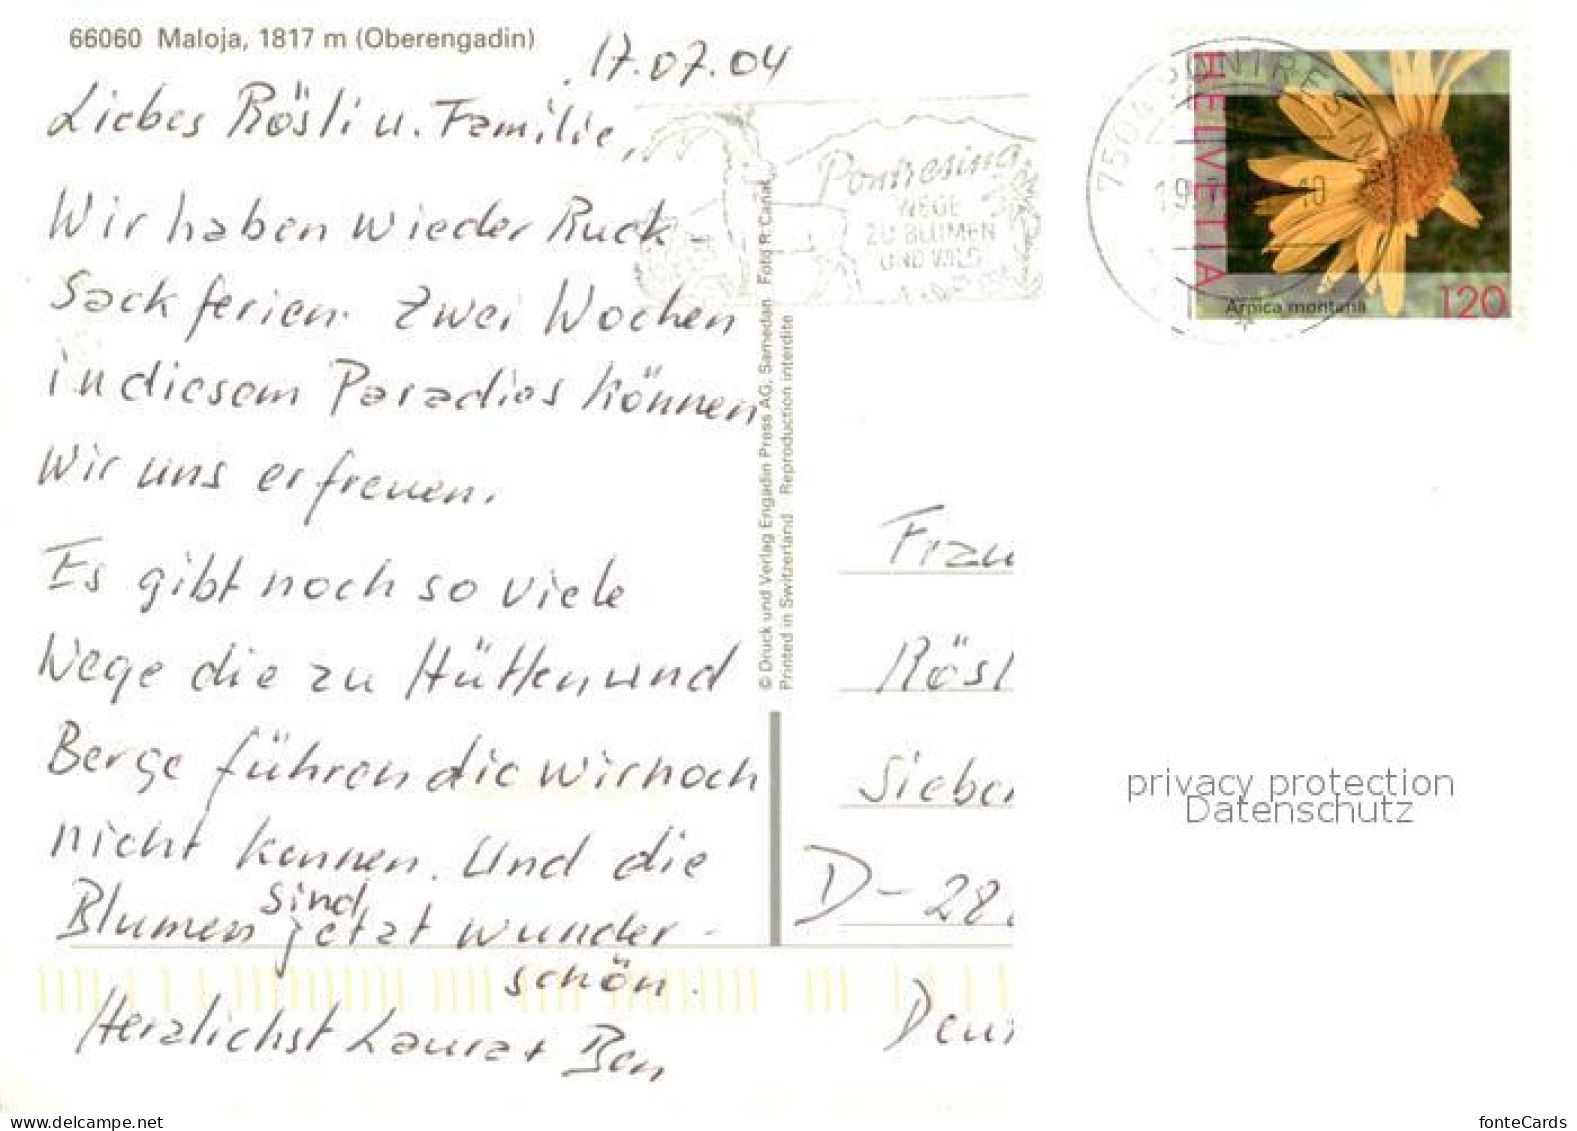 66060 Maloja, 1817 m (Oberengadin)
17.07.04
Liebes Rösli u. Familie,
Wir haben wieder Ruck-
sackferien. Zwei Wochen
in diesem Paradies können
wir uns erfreuen.
Es gibt noch so viele
Wege die zu Hütten und
Berge führen die wir noch
nicht kennen. Und die
sind
Blumen jetzt wunder-
schön.
Herzlichst Laura + Ben
© Druck und Verlag Engadin Press AG, Samedan Foto R. Canal
Printed in Switzerland Reproduction interdite
Pontresina
WEGE
ZU BLUMEN
UND WILD
7504 PONTRESINA
HELVETIA
Arnica montana
120
Frau
Rösl
Sieber
D-28
Deut
privacy protection
Datenschutz
www.delcampe.net
fonteCards